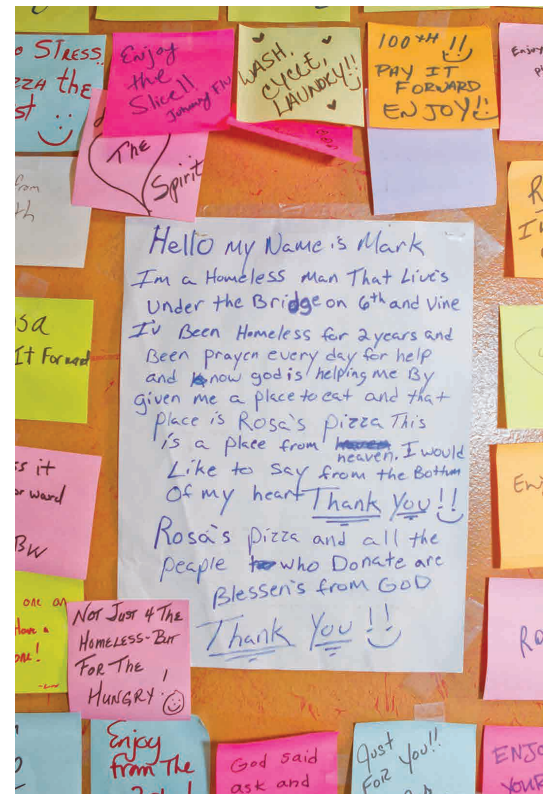 O STRESS
ZZA the
st
Enjoy
the
Slice!!
WASH,
CYCLE,
LAUNDRY!!
100TH!!
PAY IT
FORWARD
ENJOY!!
Enjoy
The
Spirit
from
th
Hello my Name is Mark
I'm a Homeless man That Live's
Under the Bridge on 6th and Vine
I'v Been Homeless for 2 years and
Been prayen every day for help
and know god is helping me By
given me a place to eat and that
place is Rosa's pizza This
is a place from
heaven. I would
Like to say from the Bottum
Of my heart Thank You!!
Rosa's pizza and all the
peaple who Donate are
Blessen's from GOD
Thank You!!
sa
It Forward
s it
or ward
BW
one an
Have a
one!
NOT JUST 4 THE
HOMELESS-BUT
FOR THE
HUNGRY!
Enjoy
from The
God said
ask and
Just
FOR YOU!!
En
Ro
ENJO
YOUR